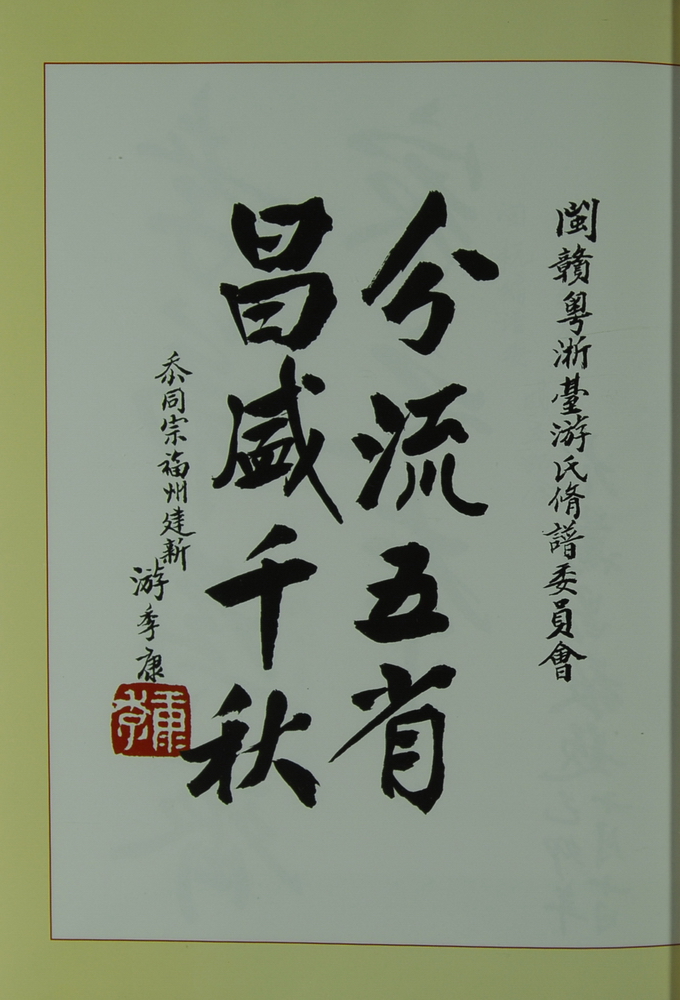 闽贛粤浙臺游氏脩譜委員會
分流五省
昌盛千秋
忝同宗福州建新
游季康